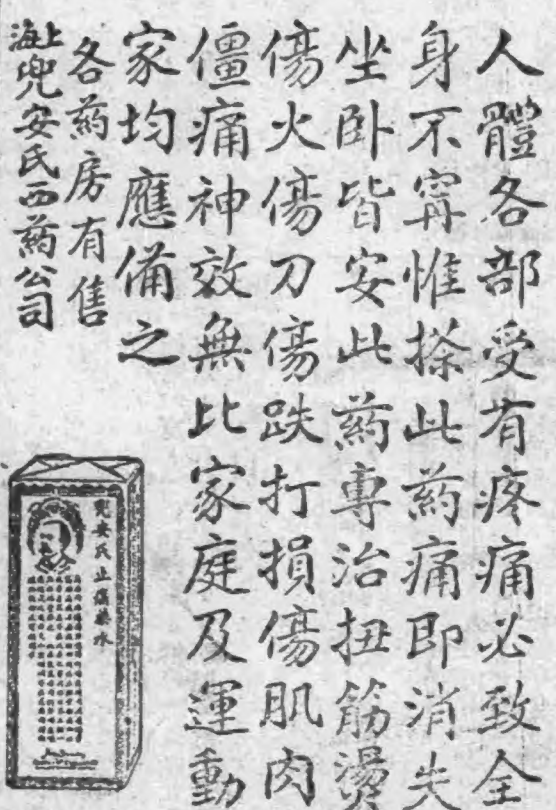 人體各部受有疼痛必致全
身不寕惟搽此葯痛即消失
坐卧皆安此葯專治扭筋燙
傷火傷刀傷跌打損傷肌肉
僵痛神效無比家庭及運動
家均應備之
各葯房有售
上海兜安氏西葯公司
兜安氏止痛藥水